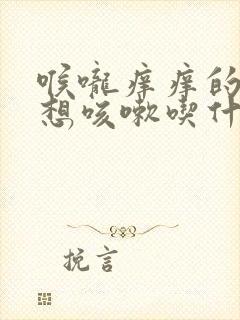 喉咙痒痒的
想咳嗽喫什
挽言